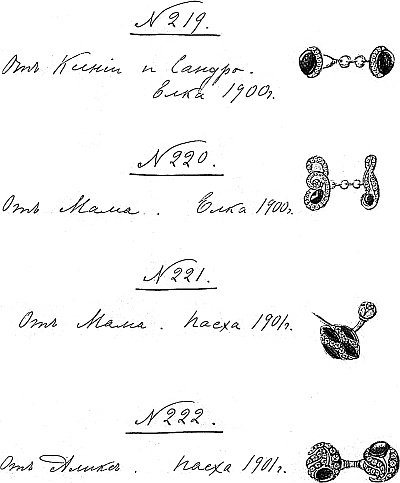 № 219.
Отъ Ксенiи и Сандро.
Елка 1900 г.
№ 220.
Отъ Мама. Елка 1900 г.
№ 221.
Отъ Мама. Пасха 1901 г.
№ 222.
Отъ Аликсъ. Пасха 1901 г.